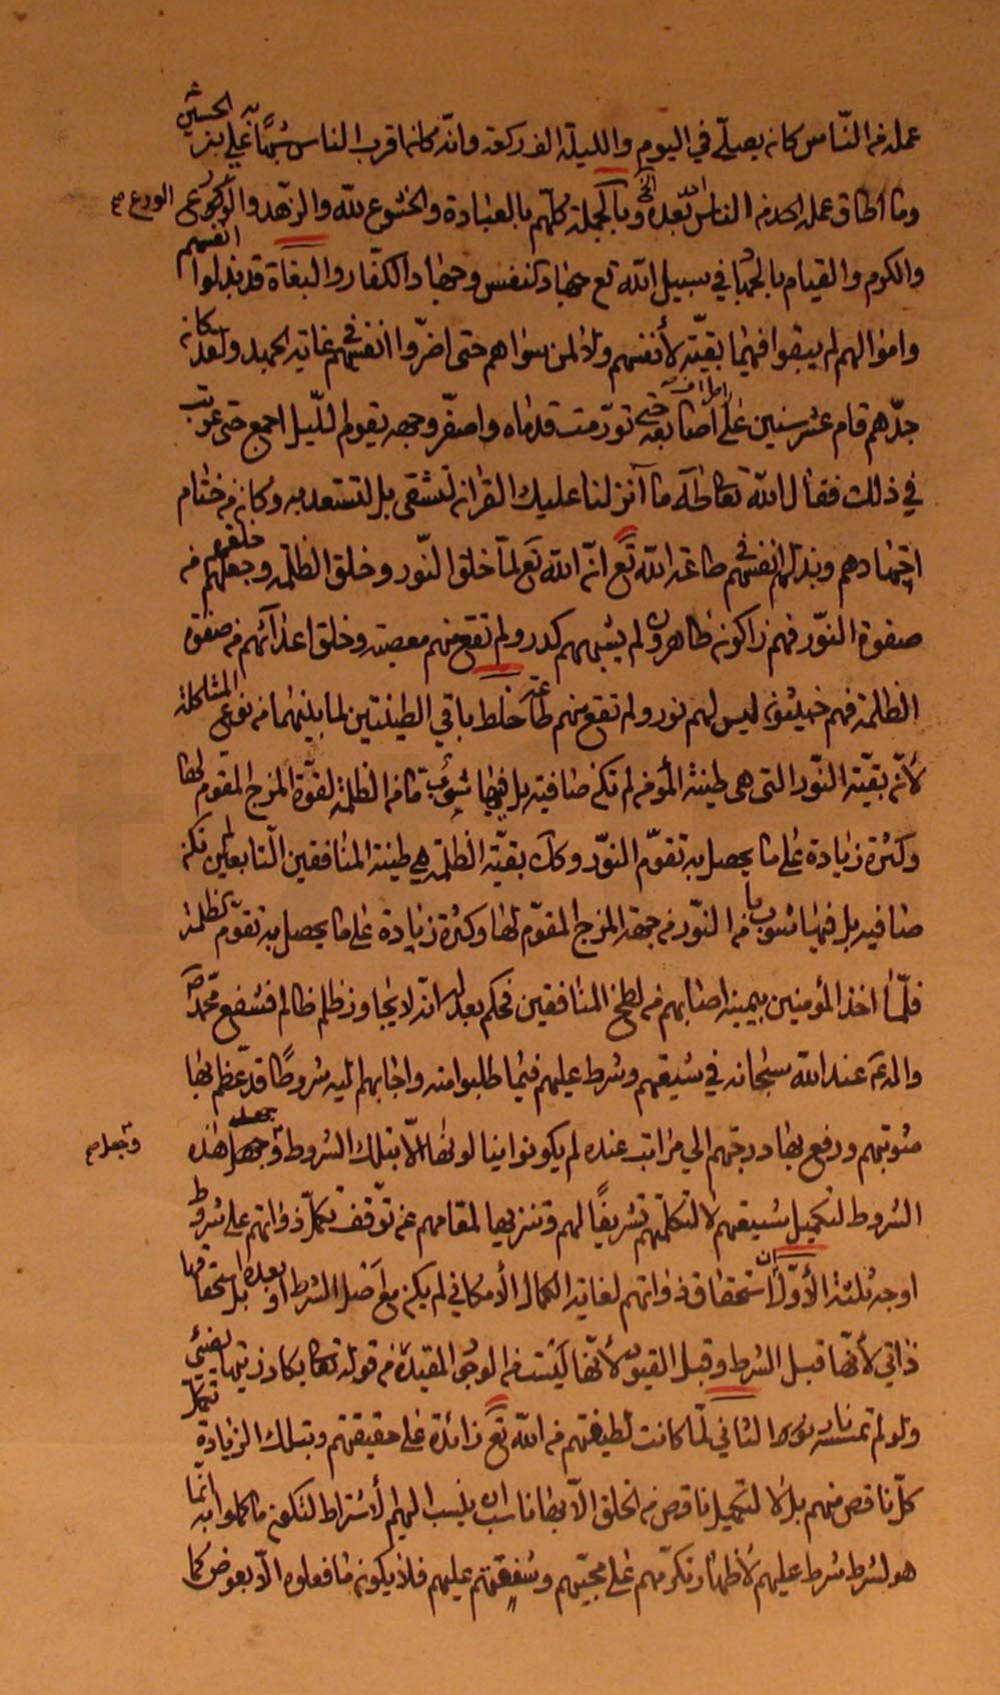 عمله من النّاس كان يصلّي في اليوم والليلة الف ركعة وانّه كان اقرب الناس شبهًا به علي بن الحسين
وما اطاق عمله احد من الناس بعده الخ وبالجملة كلّهم بالعبادة والخشوع لله والزّهد والورع
والكرم والقيام بالجهاد في سبيل الله مع جهاد النفس وجهاد الكفّار والبغاة قد بذلوا انفسهم
واموالهم لم يبقوا فيهما بقيّة لأنفسهم ولا لمن سواهم حتى اضرّوا انفسهم في غاية الجهد ولقد كان
جدّهم قام عشر سنين على اطراف اصابعه حتى تورّمت قدماه واصفّر وجهه يقوم اللّيل اجمع حتى عوتب
في ذلك فقال الله تعالى طه ما أنزلنا عليك القران لتشقى بل لتستعد به وكان من ختام
اجتهادهم وبذلهم انفسهم في طاعة الله تع انّ الله تع لمّا خلق النّور وخلق الظلمة وجعلهم خلقهم من
صفوة النّور فهم زاكون طاهرون لم يشبهم كدر ولم تقع منهم معصية وخلق اعدآئهم من صفوة
الظلمة فهم خبيثون ليس لهم نور ولم تقع منهم طاعة خلط باقي الطينتين لما بينهما من نوعي المشاكلة
لأنّ بقيّة النّور التي هي طينة المؤمن لم تكن صافية بل فيها شوب ما من الظلمة لقوّة المزج المقوم لها
وكثرة زيادة على ما يحصل به تقوّم النّور وكك بقيّة الظلمة هي طينة المنافقين التابعين لم تكن
صافيه بل فيها شوب ما من النّور من جهة المزج المقوّم لها وكثرة زيادة على ما يحصل به تقوّم الظلمة
فلمّا اخذ المؤمنين بيمينه اصابهم من لطخ المنافقين فحكم بعدله انّه لا يجاوزه ظلم ظالم فشفع محمّد ص
واله ع عند الله سبحانه في شيعتهم وشرط عليهم فيما طلبوا منه واجابهم اليه شروطًا قد عظم بها
مثوبتهم ورفع بها درجتهم الى مراتب عنده لم يكونوا ينالونها الّا بتلك الشروط وجعل هذه
الشروط لتكميل شيعتهم لا لتكملتهم تشريفًا لهم وتنزيها لمقامهم عن توقف تكمّل ذواتهم على شروط
اوجه ثلثة الأوّل ان استحقاق ذواتهم لغاية الكمال الأمكاني لم يكن مع اصل الشرط او بعده بل استحقاقها
ذاتي لأنّها قبل الشرط وقبل القيود لأنّها ليست من الوجود المقيّد من قوله تعالى يكاد زيتها يضيئ
ولو لم تمسسه نار الثاني لمّا كانت لطيفتهم من الله تع زائدة على حقيقتهم وبتلك الزيادة تكمّل
كلّ ناقص منهم بل لا لتكميل ناقص من الخلق الّا بها ناسب ان ينسب اليهم لأشتراط لتكون ما كملوا به انّما
هو لشرط شرط عليهم لأظهار تكرّمهم على محبّيهم وشفقتهم عليهم فلا يكون ما فعلوه الّا بعوض كما
الورع صح
وجعل صح